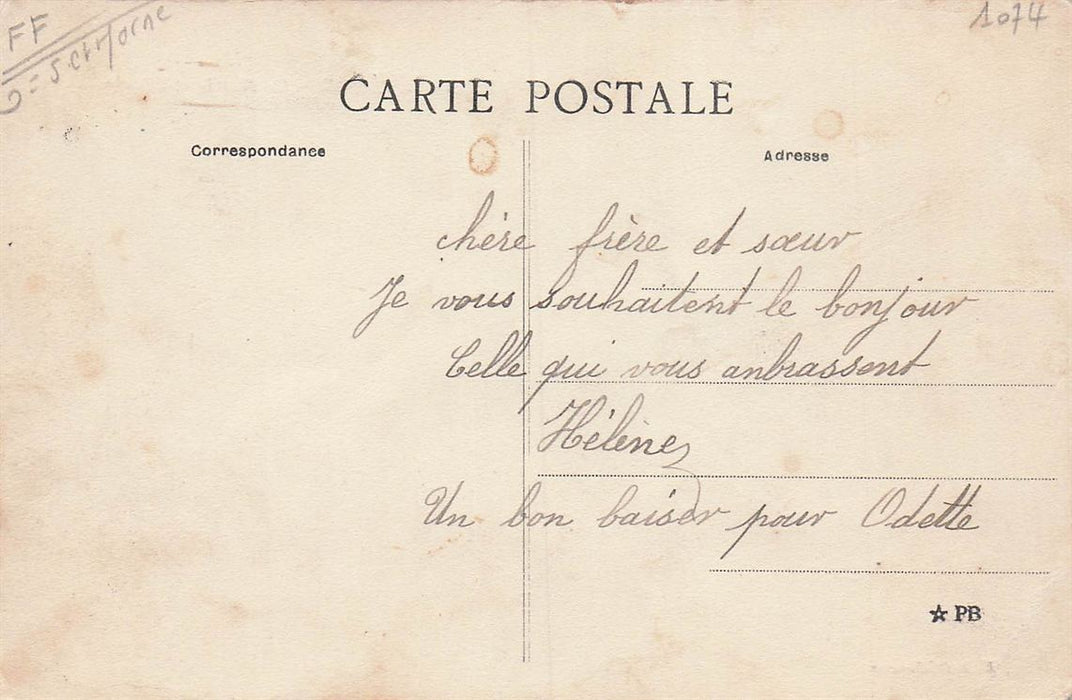 FF
1074
CARTE POSTALE
Correspondance
Adresse
chére frère et sœur
Je vous souhaitent le bonjour
Celle qui vous anbrassent
Hélène
Un bon baiser pour Odette
☆ PB